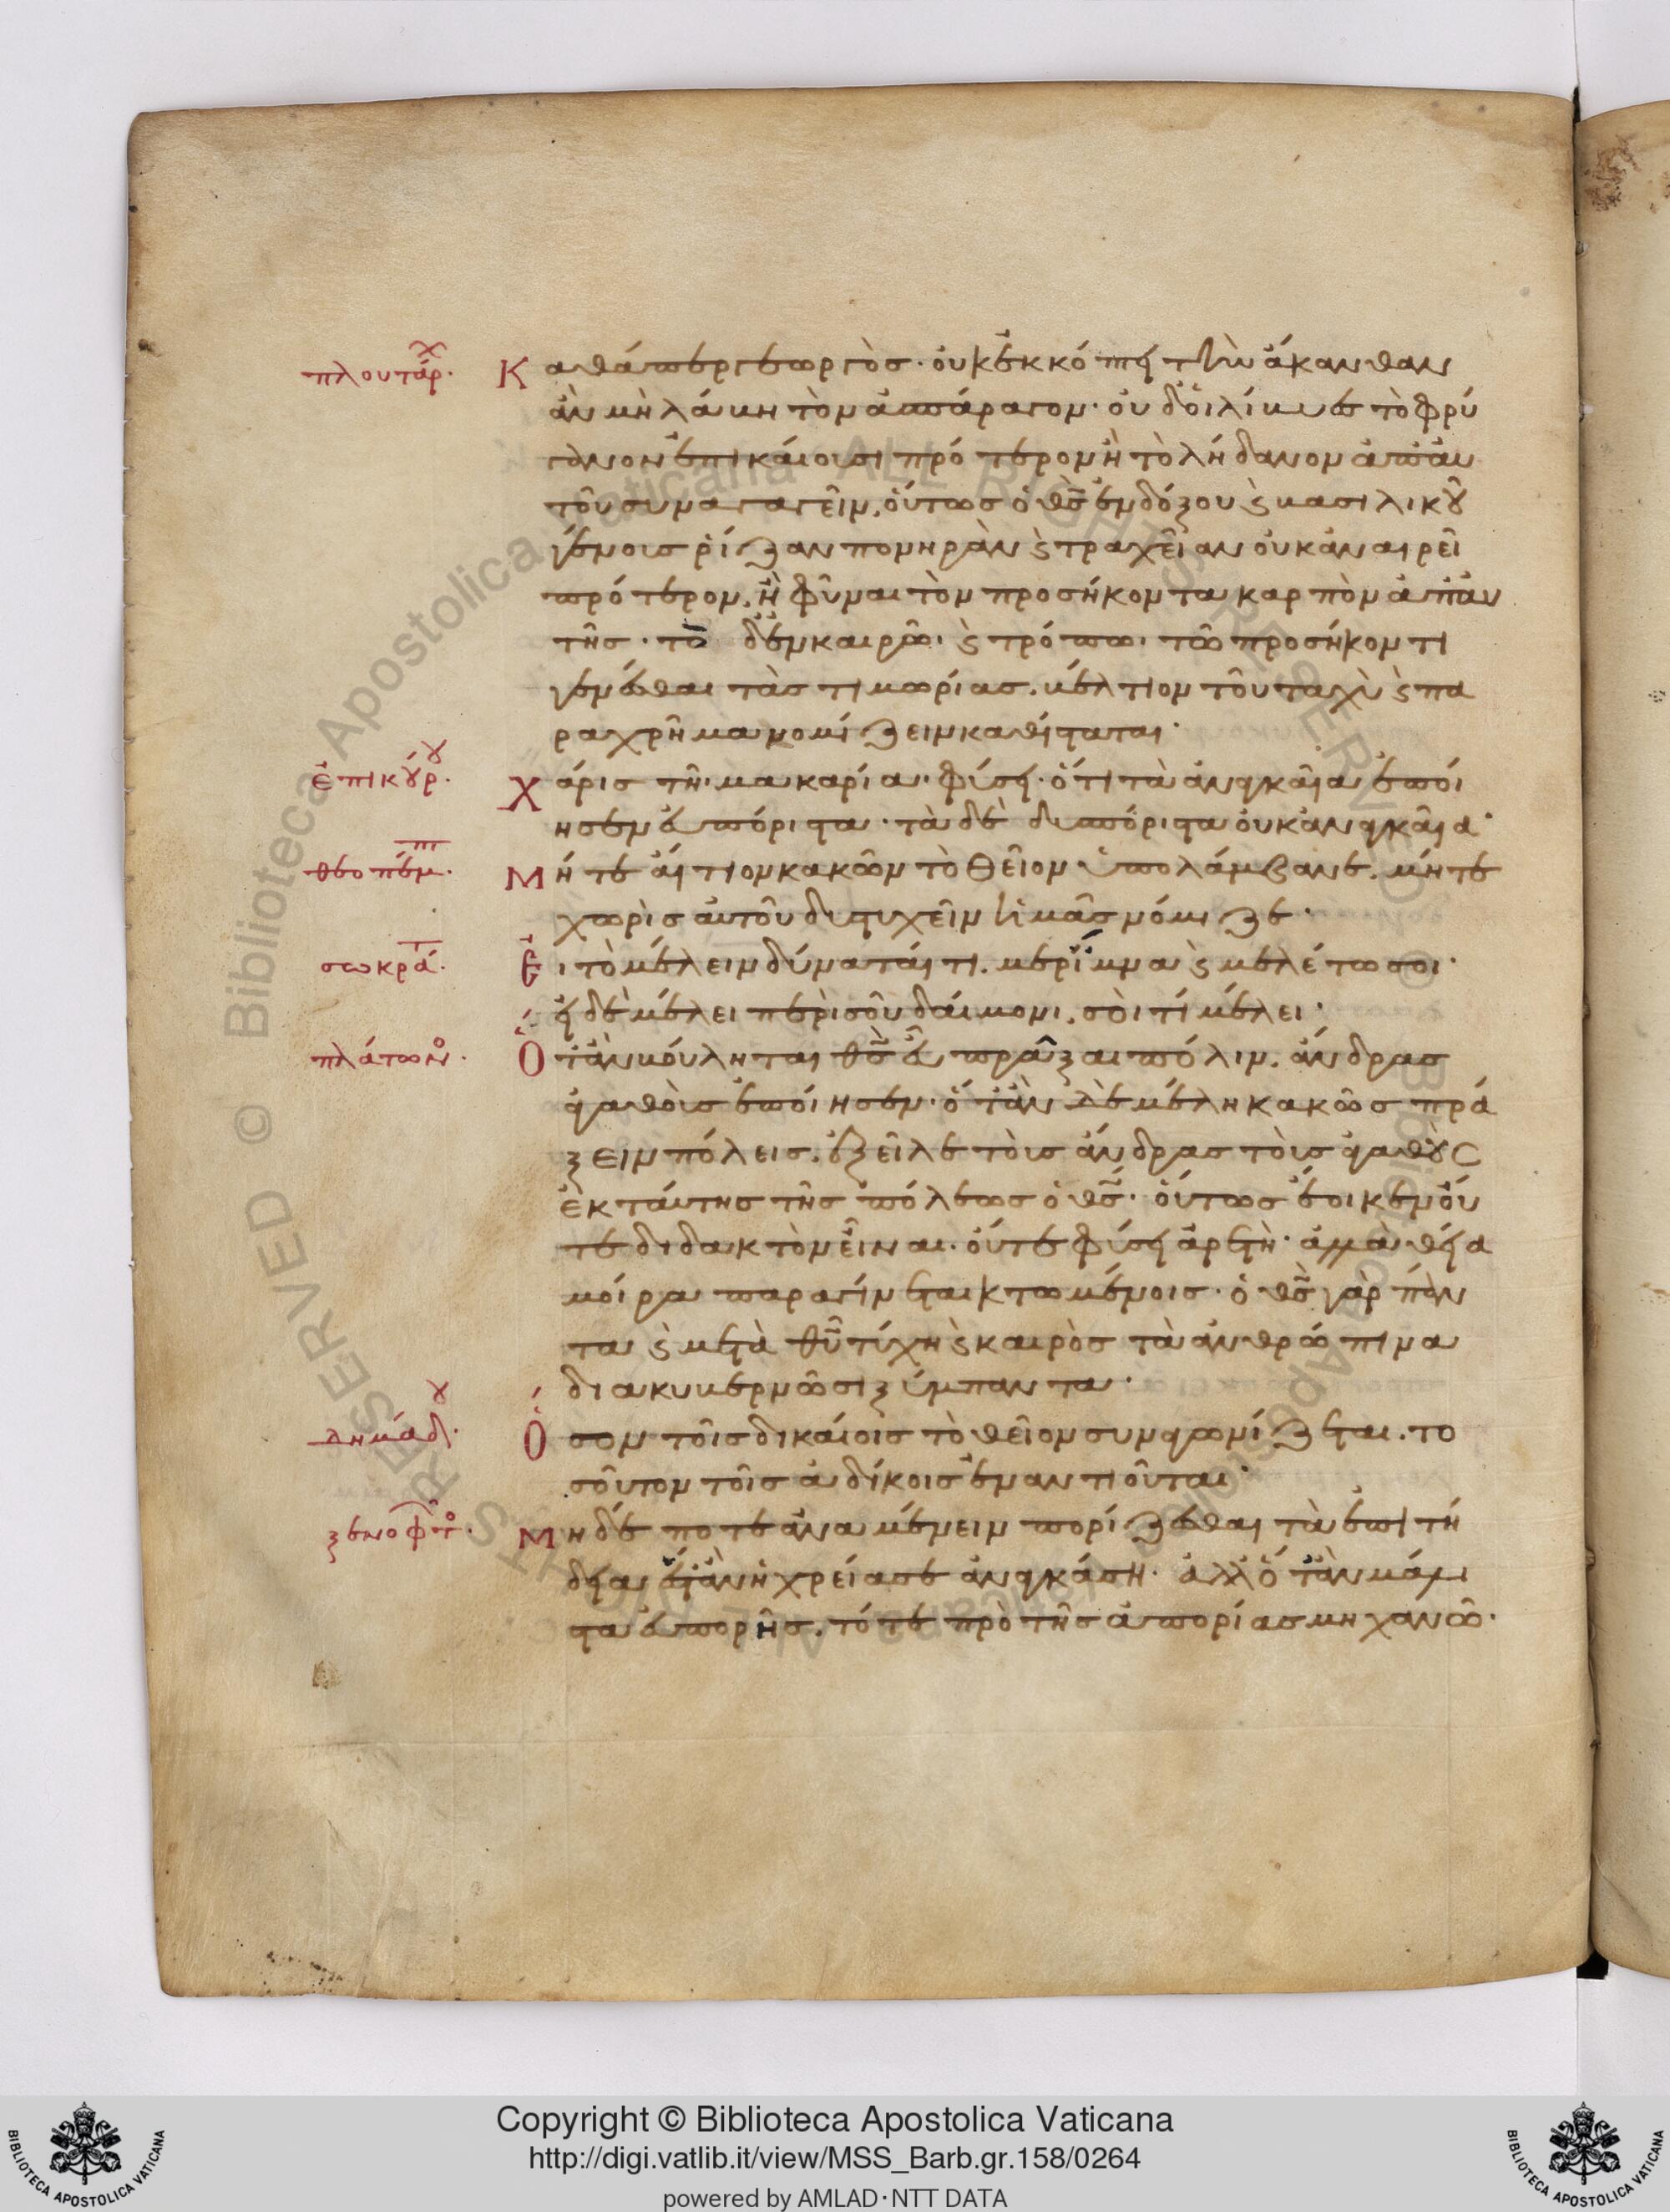 πλουτάρχ. Καθάπερ γεωργὸς· οὐκ ἐκκόπτει τὴν ἄκανθαν
ἂν μὴ λάβη τὸν ἀσπάραγον· οὐδ' οἱ λίβυες τὸ φρύ
γανον ἐπικαίουσι πρότερον ἢ τὸ λήδανον ἀπ' αυ
τοῦ συναγαγεῖν. οὕτως ὁ θς ἐνδόξου ϗ βασιλικοῦ
γένους ῥίζαν πονηρὰν ϗ τραχεῖαν οὐκ ἀναιρεῖ
πρότερον. ἢ φῦναι τὸν προσήκοντα καρπὸν ἀπ' αυ
τῆς· τὸ δ' ἐν καιρῶ· ϗ τρόπω· τῶ προσήκοντι
γενέσθαι τὰς τιμωρίας. βέλτιον τοῦ ταχὺ ϗ πα
ραχρῆμα νομίζειν καθίσταται·
ἐπικούρου. Χάρις τῆ μακαρία φύσει· ὅτι τὰ ἀναγκαῖα ἐποί
ησεν εὐπόριστα· τὰ δὲ δυσπόριστα οὐκ ἀναγκαῖα·
θεοπέμπτ. Μήτε αἴτιον κακῶν τὸ θεῖον ὑπολάμβανε. μήτε
χωρὶς αὐτοῦ δυστυχεῖν ἡμᾶς νόμιζε·
σωκράτ. Εἰ τὸ μέλειν δύναταί τι. μερίμνα ϗ μελέτω σοι·
εἰ δὲ μέλει περὶ σοῦ δαίμονι. σοὶ τί μέλει·
πλάτωνο. Ὅταν βούληται θς εὖ πρᾶξαι πόλιν. ἄνδρας
ἀγαθοὺς ἐποίησεν· ὅταν δὲ μέλη κακῶς πρά
ξειν πόλεις. ἐξεῖλε τοὺς ἄνδρας τοὺς ἀγαθοὺς
ἐκ ταύτης τῆς πόλεως ὁ θς· οὕτως ἔοικεν οὔ
τε διδακτὸν εἶναι. οὔτε φύσει ἀρετὴ· ἀλλὰ θεία
μοίρα παραγίνεται κτωμένοις· ὁ θς γὰρ πάν
τα ϗ μετὰ θυ τύχη ϗ καιρὸς τὰ ἀνθρώπινα
διακυβερνῶσι ξύμπαντα·
δημάδου. Ὅσον τοῖς δικαίοις τὸ θεῖον συναγωνίζεται. το
σοῦτον τοῖς ἀδίκοις ἐναντιοῦται·
ξενοφῶντο. Μηδέ ποτε ἀναμένειν πορίζεσθαι τὰ ἐπιτή
δεια ἔστ' ἂν ἡ χρεία σε ἀναγκάση· ἀλλ' ὅταν μάλι
στα εὐπορῆς. τότε πρὸ τῆς ἀπορίας μηχανῶ·
Copyright © Biblioteca Apostolica Vaticana
http://digi.vatlib.it/view/MSS_Barb.gr.158/0264
powered by AMLAD·NTT DATA
BIBLIOTECA APOSTOLICA VATICANA
BIBLIOTECA APOSTOLICA VATICANA